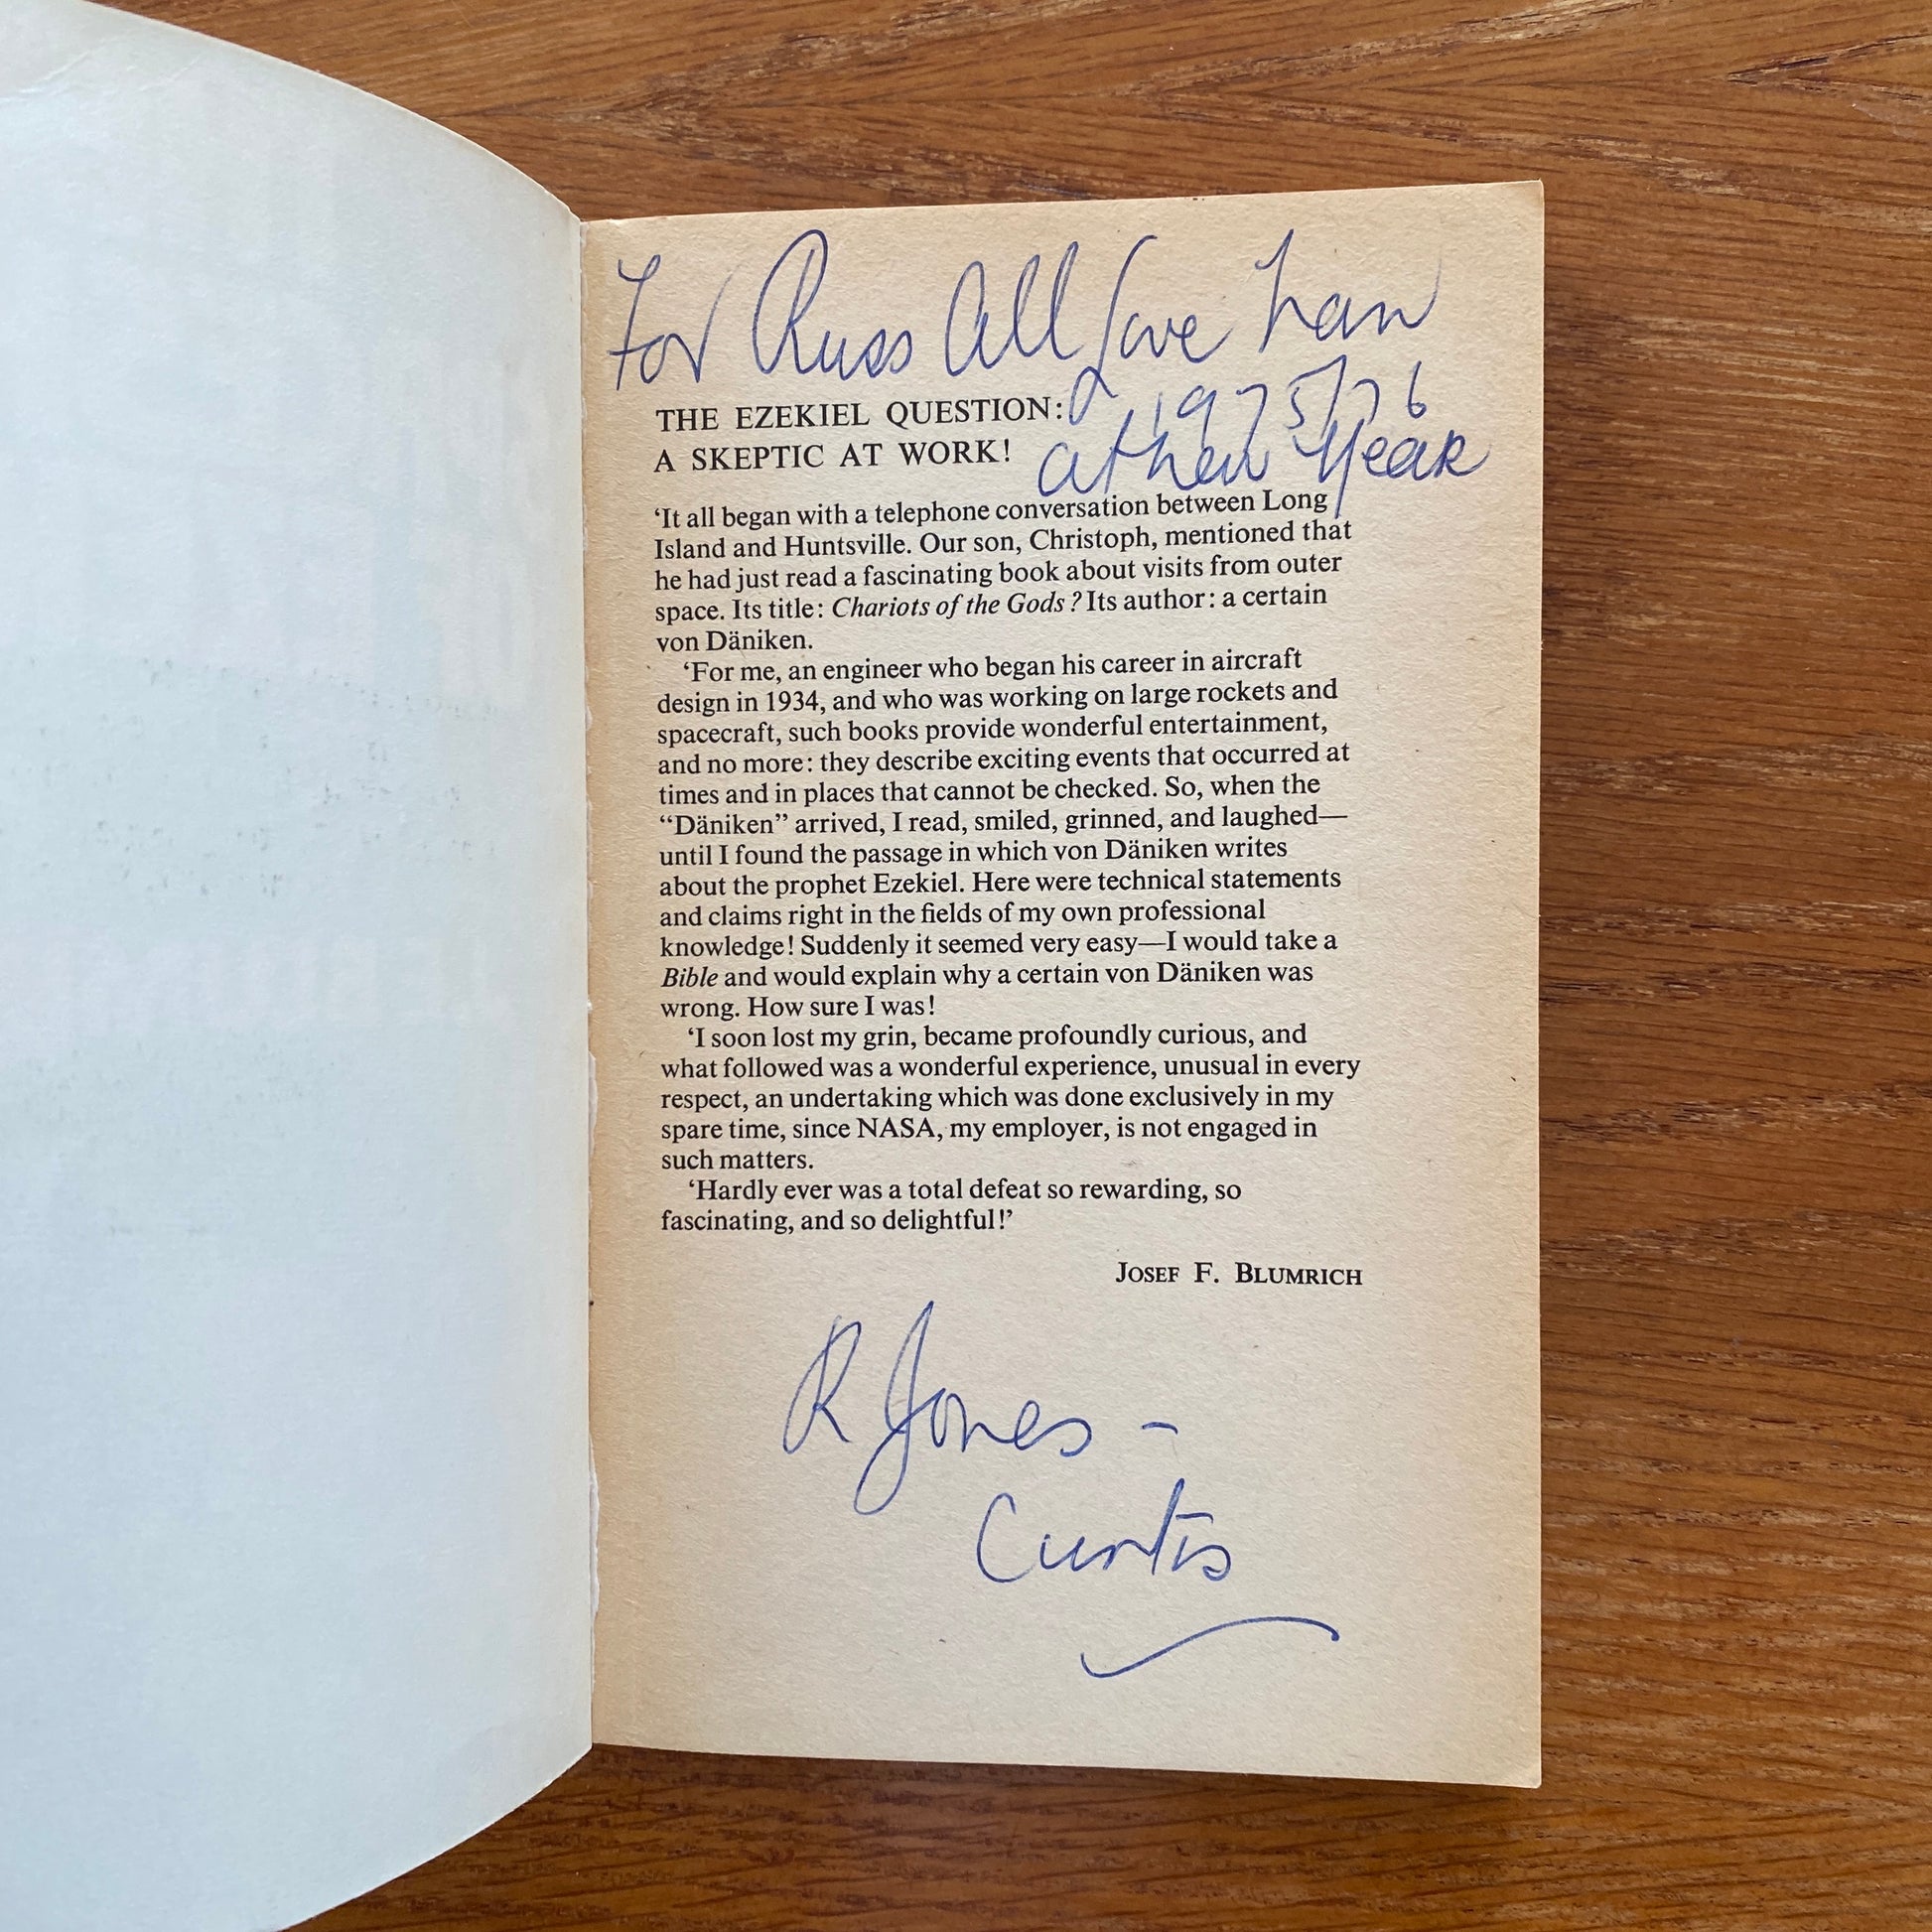 For Russ All Love
1975/76
THE EZEKIEL QUESTION:
A SKEPTIC AT WORK!
at New Year
‘It all began with a telephone conversation between Long
Island and Huntsville. Our son, Christoph, mentioned that
he had just read a fascinating book about visits from outer
space. Its title: Chariots of the Gods? Its author: a certain
von Däniken.
‘For me, an engineer who began his career in aircraft
design in 1934, and who was working on large rockets and
spacecraft, such books provide wonderful entertainment,
and no more: they describe exciting events that occurred at
times and in places that cannot be checked. So, when the
“Däniken” arrived, I read, smiled, grinned, and laughed—
until I found the passage in which von Däniken writes
about the prophet Ezekiel. Here were technical statements
and claims right in the fields of my own professional
knowledge! Suddenly it seemed very easy—I would take a
Bible and would explain why a certain von Däniken was
wrong. How sure I was!
‘I soon lost my grin, became profoundly curious, and
what followed was a wonderful experience, unusual in every
respect, an undertaking which was done exclusively in my
spare time, since NASA, my employer, is not engaged in
such matters.
‘Hardly ever was a total defeat so rewarding, so
fascinating, and so delightful!’
JOSEF F. BLUMRICH
R Jones -
Curtis